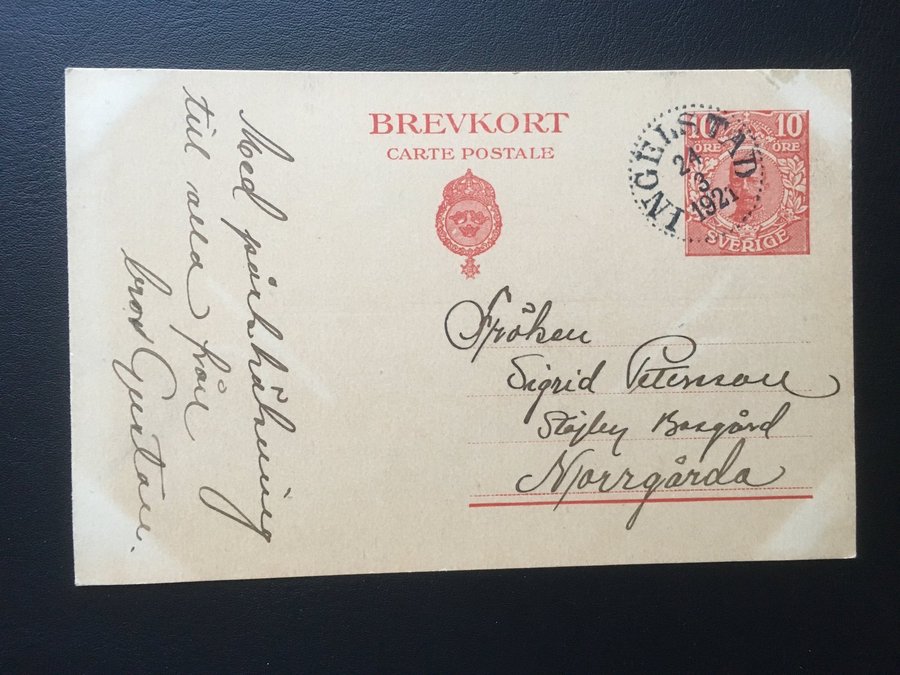 BREVKORT
CARTE POSTALE
INGELSTAD
21
3
1921
10 10
ÖRE ÖRE
SVERIGE
Fröken
Sigrid Peterson
Bosgård
Norrgårda
Med påsk hälsning
till alla från
bror Gustav.